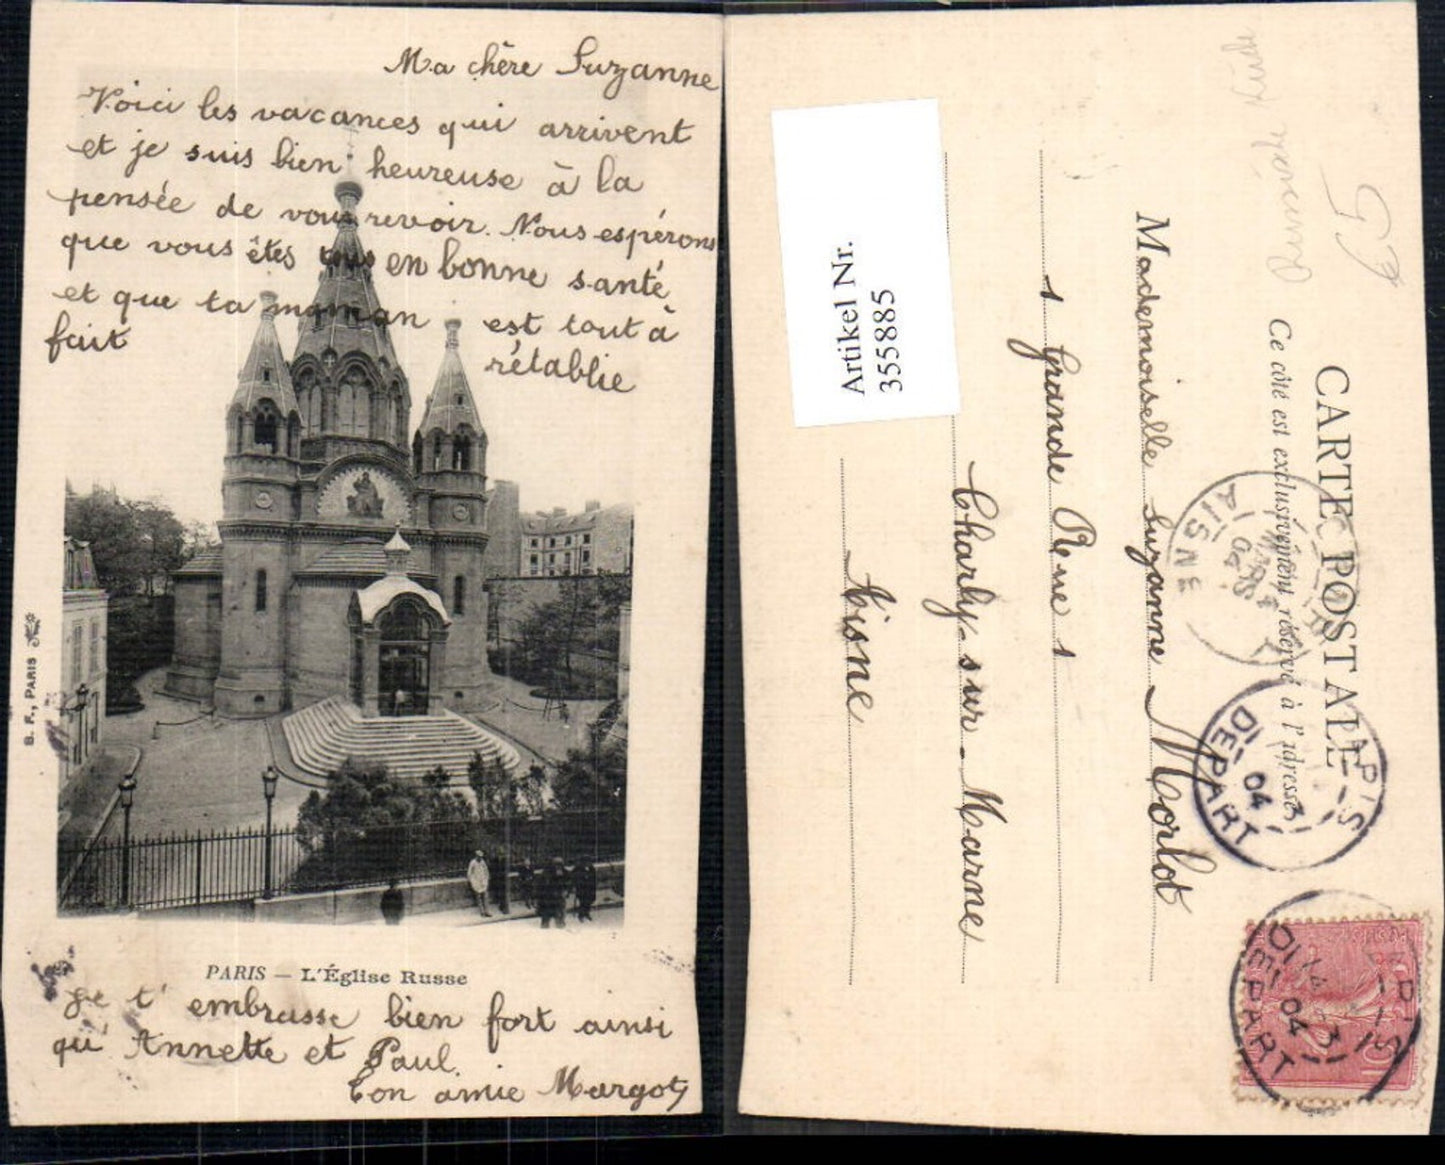 Ma chère Suzanne
Voici les vacances qui arrivent
et je suis bien heureuse à la
pensée de vous revoir. Nous espérons
que vous êtes tous en bonne santé
et que ta maman est tout à
fait rétablie
B. F., PARIS
PARIS — L'Église Russe
Je t'embrasse bien fort ainsi
qu'Annette et Paul.
Ton amie Margot
Artikel Nr.
355885
CARTE POSTALE
Ce côté est exclusivement réservé à l'adresse
Mademoiselle Suzanne Morlot
1 Grande Rue 1
Charly-sur-Marne
Aisne
Russische Kirche
€5
AISNE
04
PARIS
DEPART
04
PARIS
DEPART
04
10